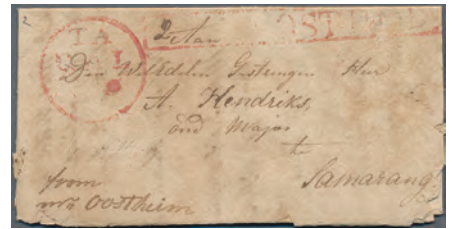 Aan
Den WelEdelen Gestrengen Heer
A. Hendriks,
oud Major
te
Samarang
from
mr Oostheim
TA